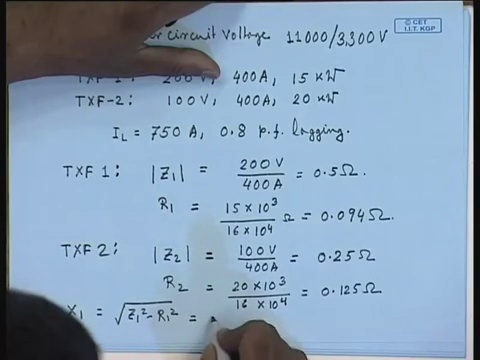 circuit Voltage 11000/3,300V
© CET
I.I.T. KGP
TXF-1: 200V, 400A, 15 kW
TXF-2: 100V, 400A, 20 kW
I_L = 750 A, 0.8 p.f. lagging.
TXF 1: |Z₁| = 200V/400A = 0.5Ω.
R₁ = 15 × 10³/16 × 10⁴ Ω = 0.094Ω.
TXF 2: |Z₂| = 100V/400A = 0.25Ω
R₂ = 20 × 10³/16 × 10⁴ = 0.125Ω
X₁ = √Z₁² - R₁² =